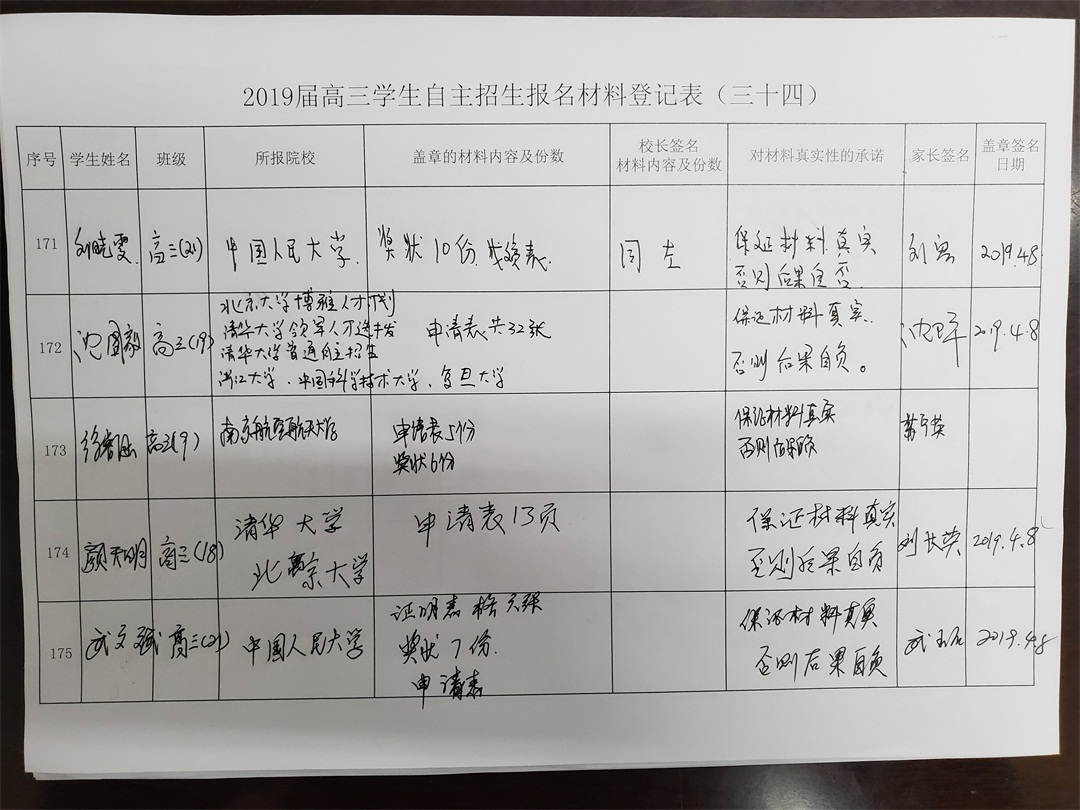 2019届高三学生自主招生报名材料登记表（三十四）
序号 学生姓名 班级 所报院校 盖章的材料内容及份数 校长签名 材料内容及份数 对材料真实性的承诺 家长签名 盖章签名日期
171 刘晓雯 高三(21) 中国人民大学 奖状10份 成绩表 保证材料真实
否则后果自否 刘 2019.4.8
172 沈国毅 高三(19) 北京大学博雅人才计划
清华大学领军人才选拔
清华大学普通自主招生
浙江大学、中国科学技术大学、复旦大学
申请表共32张 保证材料真实
否则后果自负。 2019.4.8
173 高三(9) 南京航空航天大学 申请表5份
奖状6份
保证材料真实
否则后果自负
174 颜天明 高三(18) 清华大学
北京大学
申请表13页 保证材料真实
否则后果自负 刘长英 2019.4.8
175 武文斌 高三(21) 中国人民大学 证明表格
奖状7份
申请表
保证材料真实
否则后果自负 武 2019.4.8